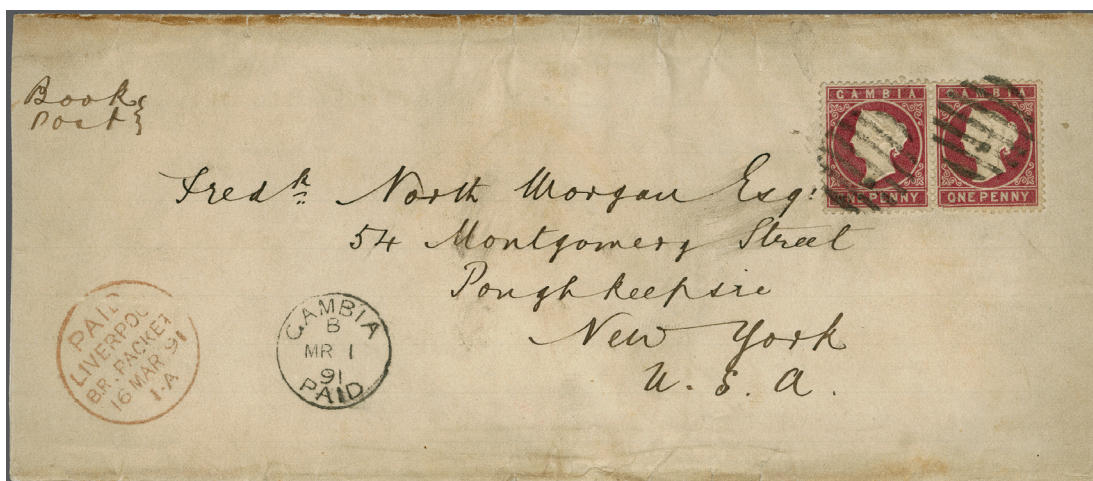 Book
Post
GAMBIA
ONE PENNY
GAMBIA
ONE PENNY
Fredk North Morgan Esqr
54 Montgomery Street
Poughkeepsie
New York
U. S. A.
PAID
LIVERPOO
BR. PACKET
16 MAR 91
1-A
GAMBIA
B
MR 1
91
PAID